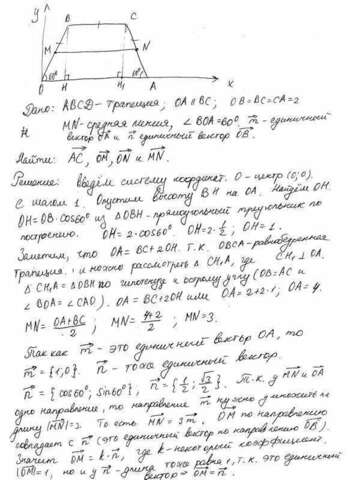 y
B
C
M
N
O
60°
H
H₁
A
x
Дано: ABCD - трапеция; OA ∥ BC; OB=BC=CA=2
MN - средняя линия, ∠BOA=60° m⃗ - единичный
вектор OA и n⃗ единичный вектор OB⃗.
Найти: AC⃗, OM⃗, ON⃗ и MN⃗.
Решение: введём систему координат. O - центр (0;0).
С шагом 1. Опустим высоту BH на OA. Найдём OH.
OH=OB·cos60° из △OBH - прямоугольный треугольник по
построению. OH=2·cos60°. OH=2·½; OH=1.
Заметим, что OA=BC+2OH. т.к. OBCA - равнобедренная
трапеция, и можно рассмотреть △CH₁A, где CH₁⊥OA.
△CH₁A=△OBH по гипотенузе и острому углу (OB=AC и
∠BOA=∠CAO). OA=BC+2OH или OA=2+2·1; OA=4.
MN=(OA+BC)/2; MN=(4+2)/2; MN=3.
Так как m⃗ - это единичный вектор OA, то
m⃗={1,0}. n⃗ - тоже единичный вектор.
n⃗={cos60°; sin60°}, n⃗={½; √3/2}. Т.к. у MN⃗ и OA⃗
одно направление, то направление m⃗ нужно умножить на
длину |MN⃗|=3. То есть MN⃗=3m⃗. OM⃗ по направлению
совпадает с n⃗ (это единичный вектор по направлению OB⃗).
Значит OM⃗=k·n⃗, где k - некоторый коэффициент.
|OM⃗|=1, но и у n⃗ - длина тоже равна 1, т.к. это единичный
вектор ⇒ OM⃗=n⃗.